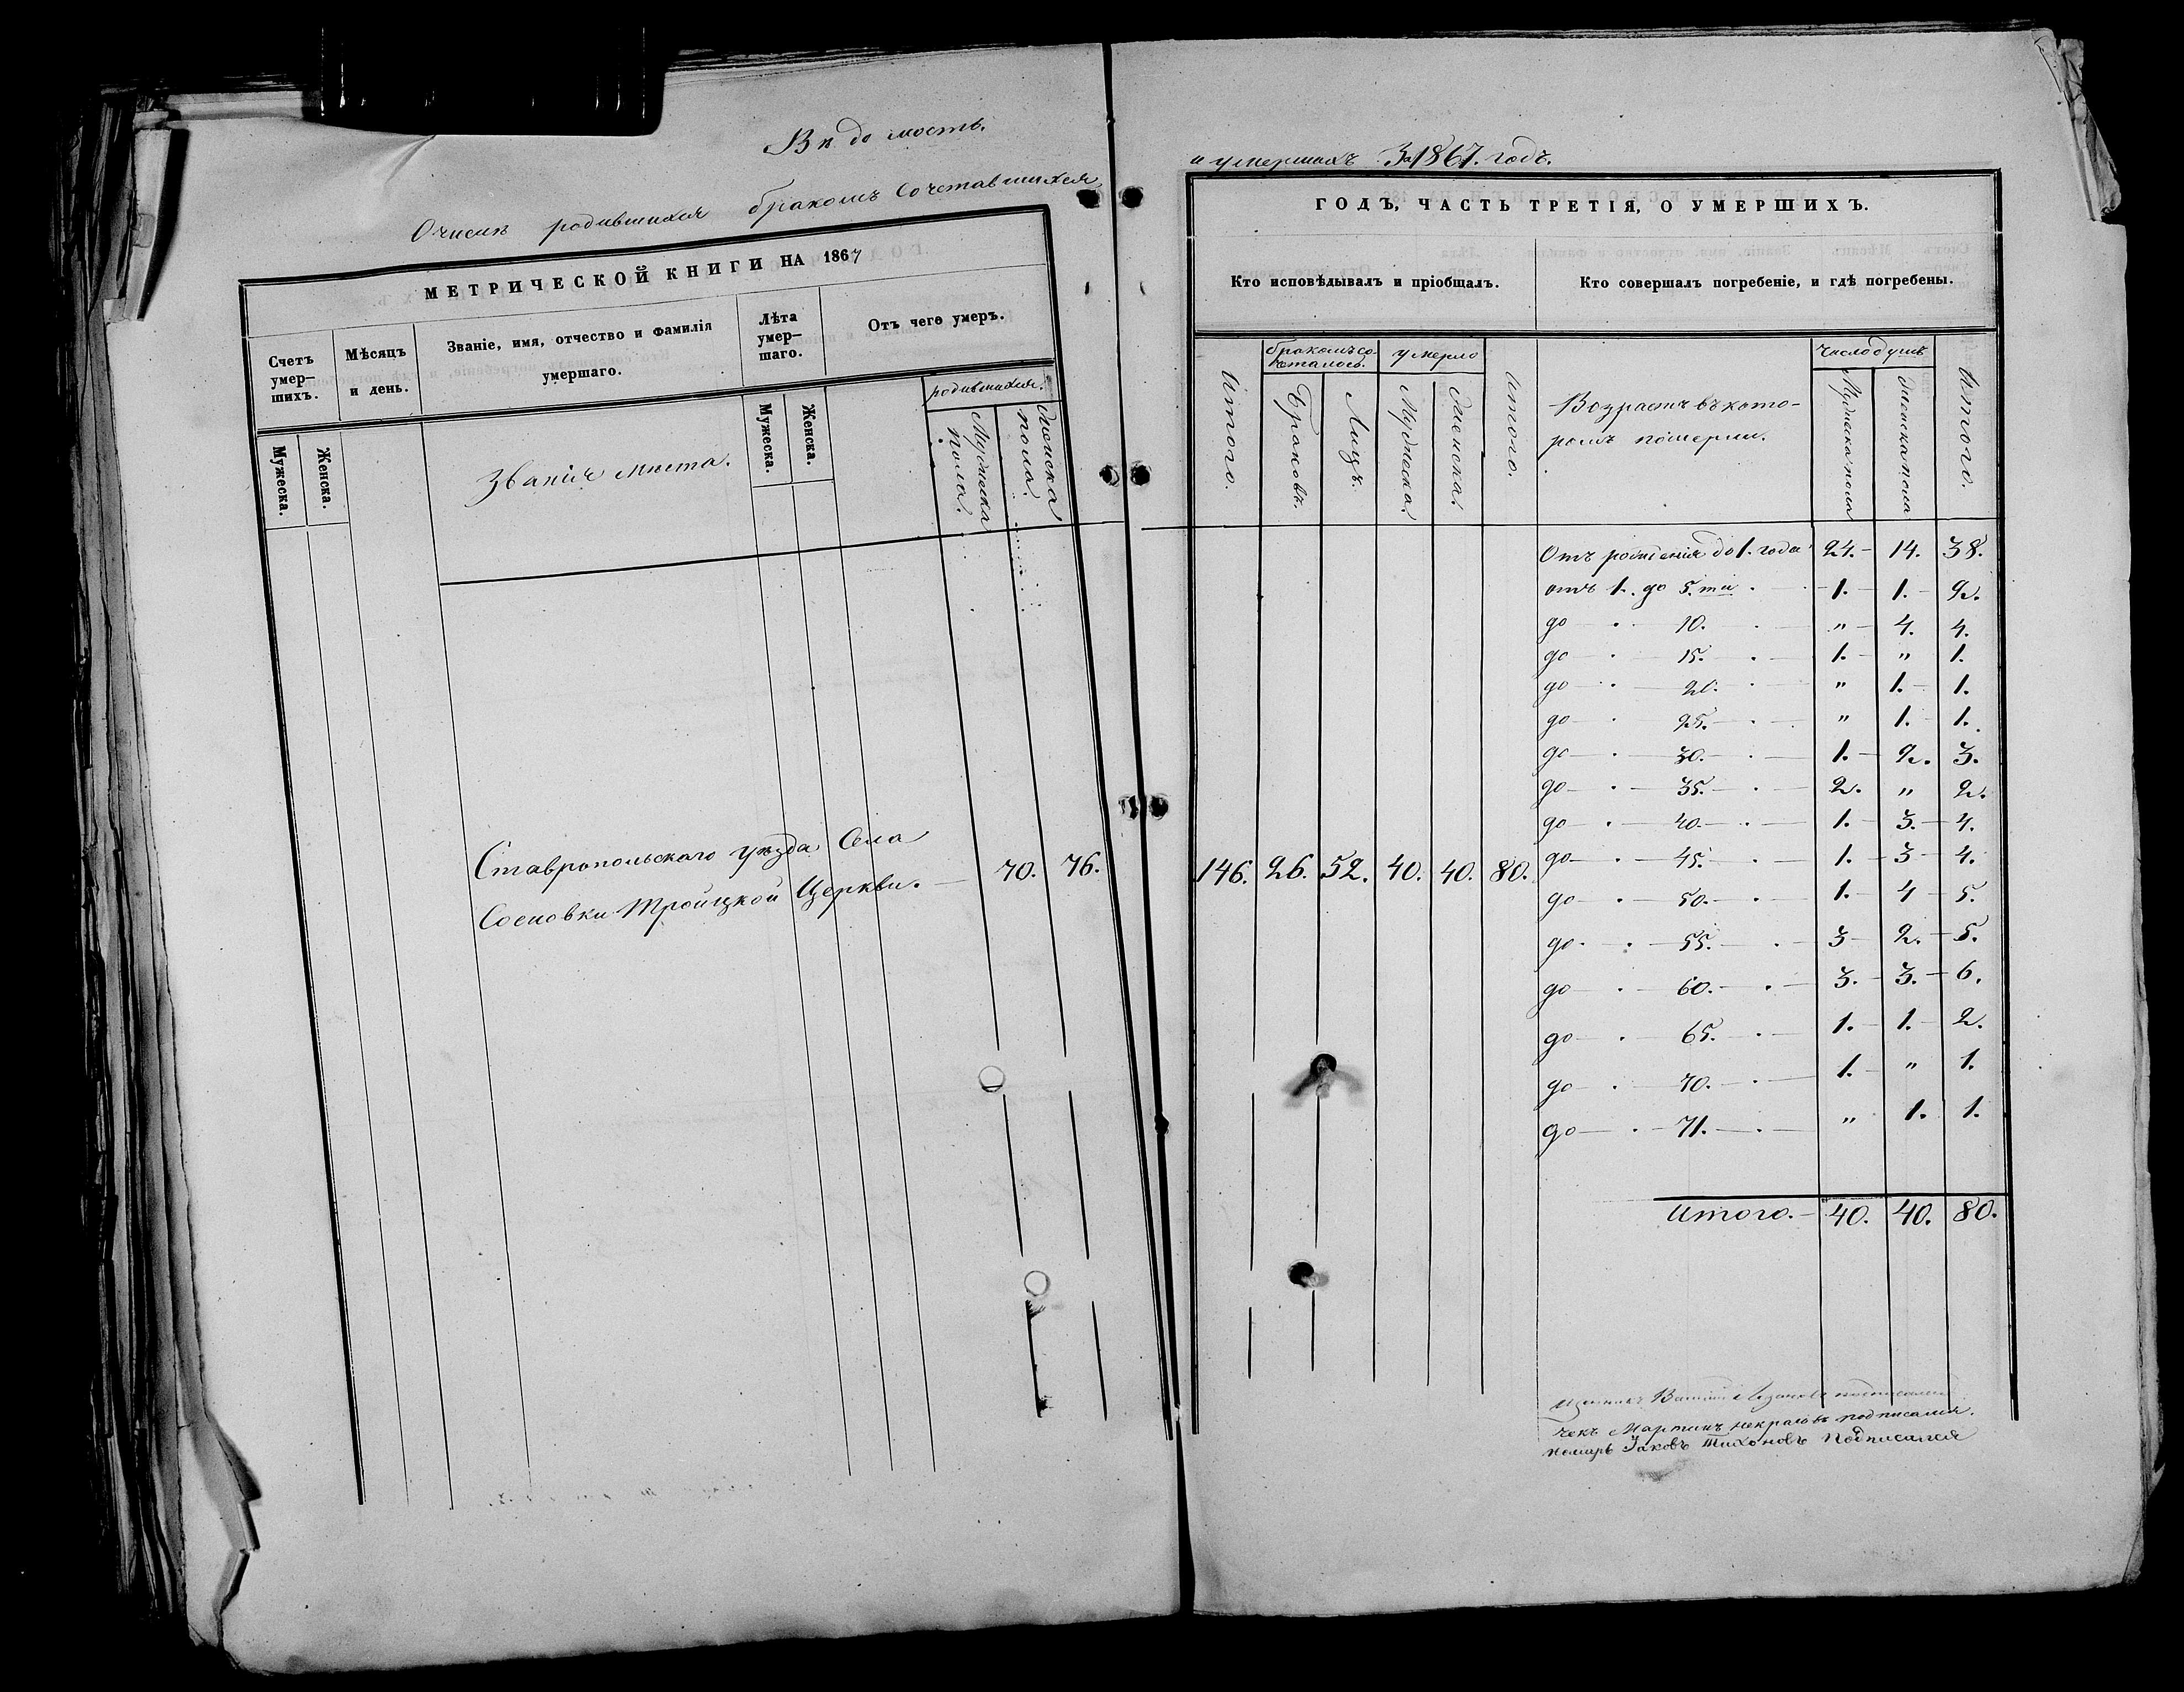 Вѣдомость.
О числѣ родившихся бракомъ сочетавшихся
МЕТРИЧЕСКОЙ КНИГИ НА 1867
Счетъ умер-шихъ.
Мѣсяцъ и день.
Званіе, имя, отчество и фамилія умершаго.
Лѣта умер-шаго.
Отъ чего умеръ.
Мужеска.
Женска.
Званія мѣста.
Мужеска.
Женска.
родившихся.
Мужеска пола.
Женска пола.
Ставропольскаго уѣзда Села
Сосновки Троицкой Церкви. — 70. 76.
и умершихъ за 1867. годъ.
ГОДЪ, ЧАСТЬ ТРЕТІЯ, О УМЕРШИХЪ.
Кто исповѣдывалъ и пріобщалъ.
Кто совершалъ погребеніе, и гдѣ погребены.
Итого.
бракомъ со-
четалось.
Браковъ.
Лицъ.
умерло
Мужеска.
Женска.
Итого.
Возрастъ въ кото-
ромъ померли.
Число душъ
Мужеска пола
Женска пола
Итого.
146. 26. 52. 40. 40. 80.
Отъ рожденія до 1. года 24. 14. 38.
отъ 1. до 5.ти 1. 1. 2.
до 10. " 4. 4.
до 15. 1. " 1.
до 20. " 1. 1.
до 25. " 1. 1.
до 30. 1. 2. 3.
до 35. 2. " 2.
до 40. 1. 3. 4.
до 45. 1. 3 4.
до 50. 1. 4 5.
до 55. 3 2. 5.
до 60. 3. 3. 6.
до 65. 1. 1. 2.
до 70. 1. " 1.
до 71. " 1. 1.
Итого. 40. 40. 80.
подписался
Мартинъ Некрасовъ подписался.
Яковъ Тихоновъ Подписался